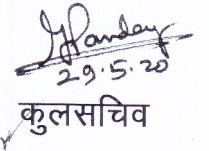 Pandey
29.5.20
कुलसचिव